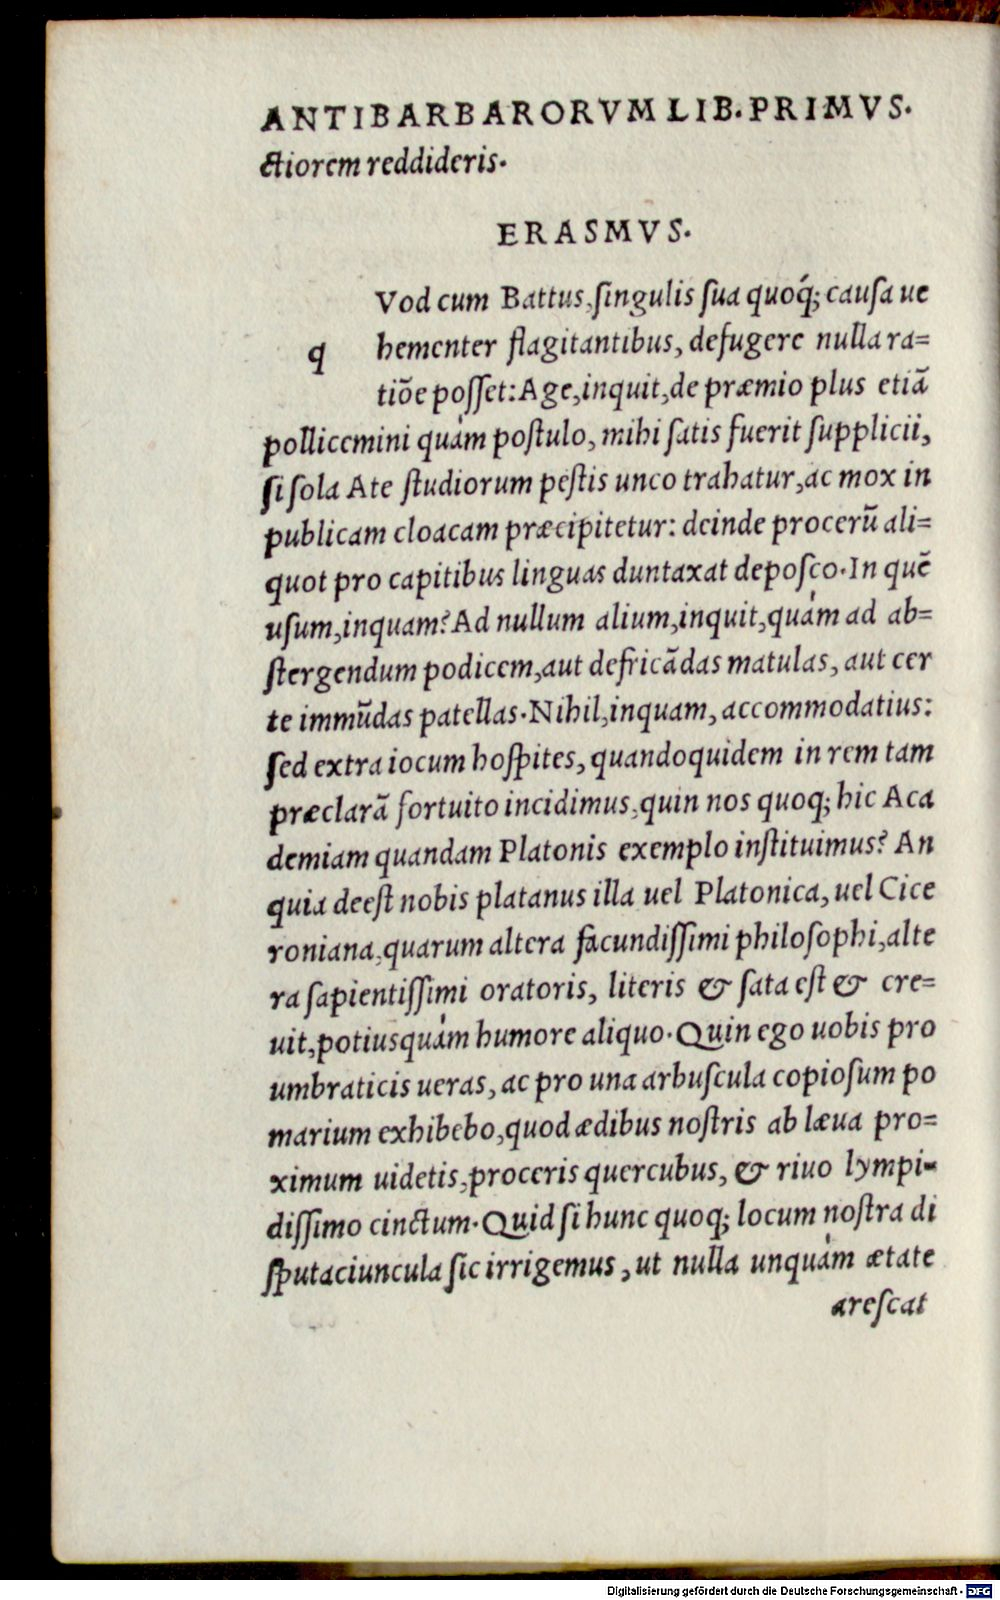 ANTIBARBARORVM LIB. PRIMVS.
ctiorem reddideris.
ERASMVS.
q
Vod cum Battus, ſingulis ſua quoq́; cauſa ue
hementer flagitantibus, defugere nulla ra=
tiõe poſſet: Age, inquit, de præmio plus etiã
pollicemini quàm poſtulo, mihi ſatis fuerit ſupplicii,
ſi ſola Ate ſtudiorum peſtis unco trahatur, ac mox in
publicam cloacam præcipitetur: deinde procerũ ali=
quot pro capitibus linguas duntaxat depoſco. In quẽ
uſum, inquam? Ad nullum alium, inquit, quàm ad ab=
ſtergendum podicem, aut defricãdas matulas, aut cer
te immũdas patellas. Nihil, inquam, accommodatius:
ſed extra iocum hoſpites, quandoquidem in rem tam
præclarã fortuito incidimus, quin nos quoq; hic Aca
demiam quandam Platonis exemplo inſtituimus? An
quia deeſt nobis platanus illa uel Platonica, uel Cice
roniana, quarum altera facundiſſimi philoſophi, alte
ra ſapientiſſimi oratoris, literis & ſata eſt & cre=
uit, potiusquàm humore aliquo. Quin ego uobis pro
umbraticis ueras, ac pro una arbuſcula copioſum po
marium exhibebo, quod ædibus noſtris ab læua pro=
ximum uidetis, proceris quercubus, & riuo lympi=
diſſimo cinctum. Quid ſi hunc quoq; locum noſtra di
ſputaciuncula ſic irrigemus, ut nulla unquàm ætate
areſcat
Digitalisierung gefördert durch die Deutsche Forschungsgemeinschaft - DFG